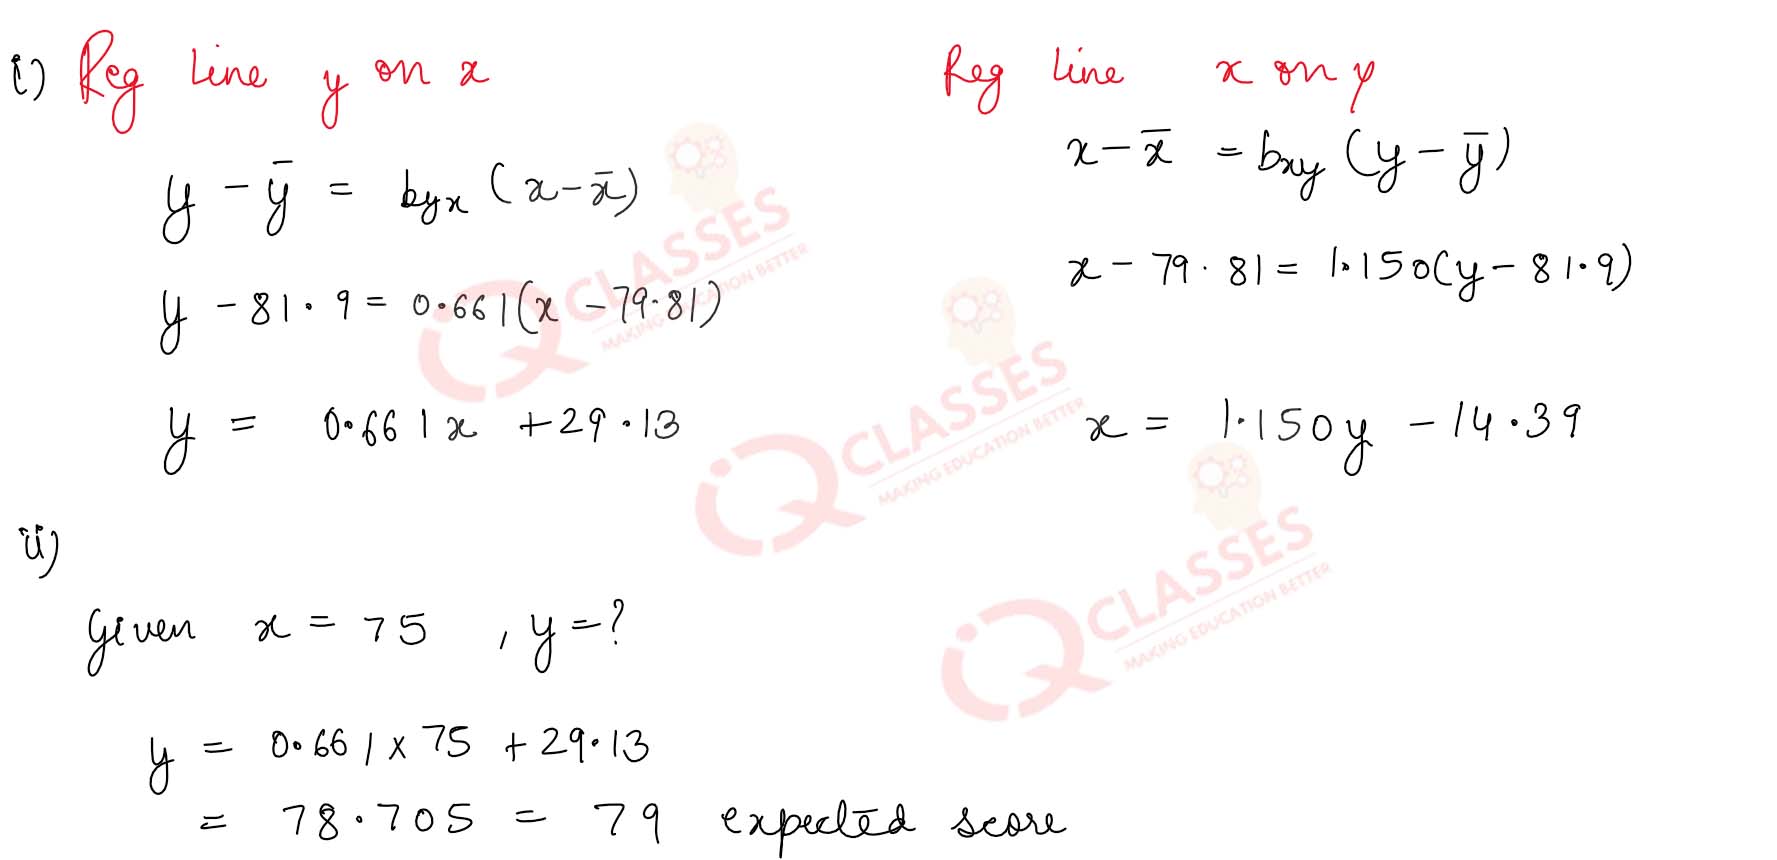 i) Reg line y on x
y - ȳ = byx (x - x̄)
y - 81.9 = 0.661(x - 79.81)
y = 0.661x + 29.13
Reg line x on y
x - x̄ = bxy (y - ȳ)
x - 79.81 = 1.150(y - 81.9)
x = 1.150y - 14.39
ii)
Given x = 75 , y = ?
y = 0.661 x 75 + 29.13
= 78.705 = 79 expected score
iQ CLASSES
MAKING EDUCATION BETTER
iQ CLASSES
MAKING EDUCATION BETTER
iQ CLASSES
MAKING EDUCATION BETTER